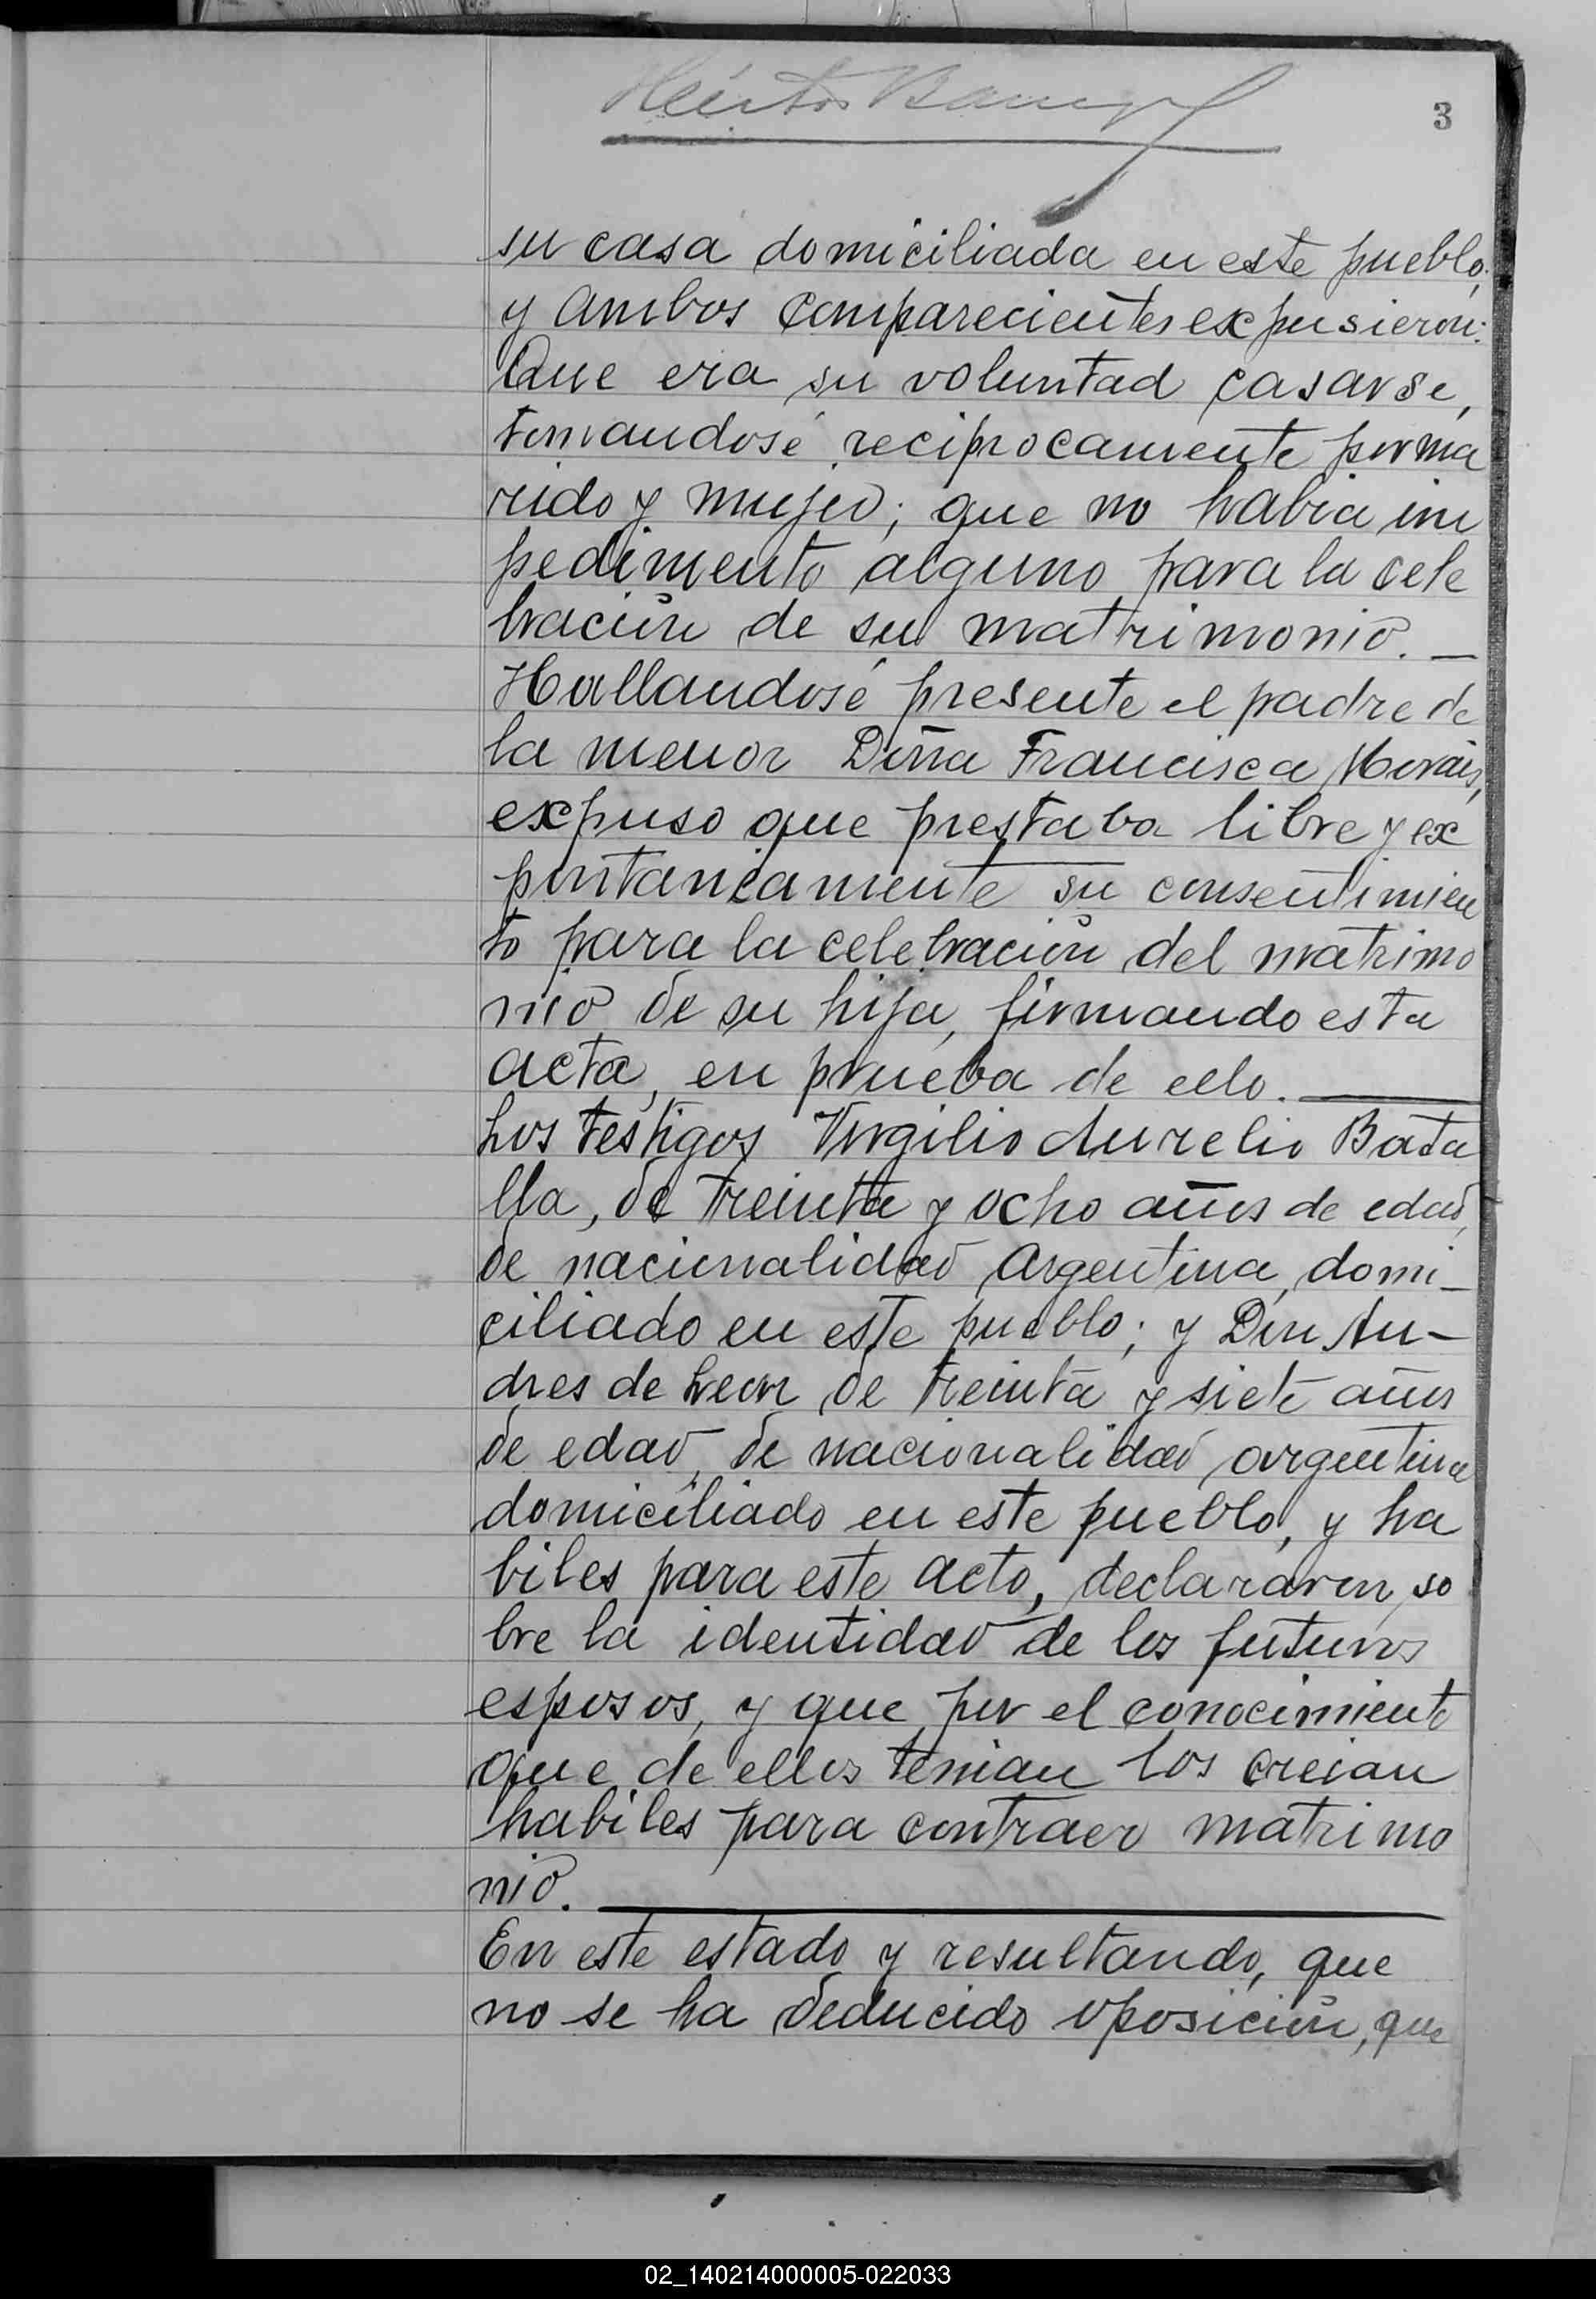 3
su casa domiciliada en este pueblo;
y ambos comparecientes expusieron:
Que era su voluntad casarse,
tomandosé reciprocamente por ma
rido y mujer; que no habia im
pedimento alguno para la cele
bración de su matrimonio. —
Hallandosé presente el padre de
la menor Doña Francisca Morais,
expuso que prestaba libre y ex
pontaneamente su consentimien
to para la celebración del matrimo
nio de su hija, firmando esta
acta, en prueba de ello. —
Los testigos Virgilio Aurelio Bata
lla, de treinta y ocho años de edad,
de nacionalidad Argentina, domi-
ciliado en este pueblo; y Don An-
dres de Leon de treinta y siete años
de edad, de nacionalidad argentina
domiciliado en este pueblo, y ha
biles para este acto, declararon so
bre la identidad de los futuros
esposos, y que por el conocimiento
que de ellos tenian los creian
habiles para contraer matrimo
nio. —
En este estado y resultando, que
no se ha deducido oposición, que
02_140214000005-022033